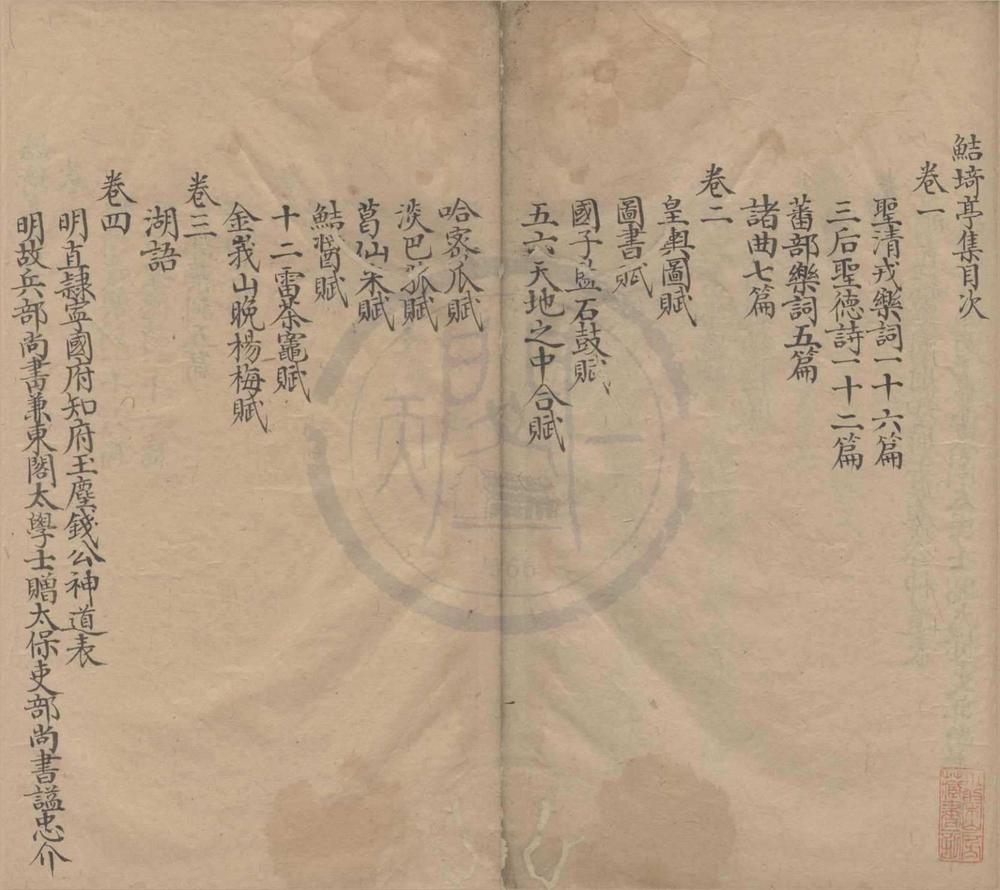 鮚埼亭集目次
卷一
聖清戎樂詞一十六篇
三后聖德詩一十二篇
蕃部樂詞五篇
諸曲七篇
卷二
皇輿圖賦
圖書賦
國子監石鼓賦
五六天地之中合賦
哈密瓜賦
淡巴菰賦
葛仙米賦
鮚醬賦
十二雷茶竈賦
金峩山晚楊梅賦
卷三
湖語
卷四
明直隸寧國府知府玉塵錢公神道表
明故兵部尚書兼東閣太學士贈太保吏部尚書謚忠介